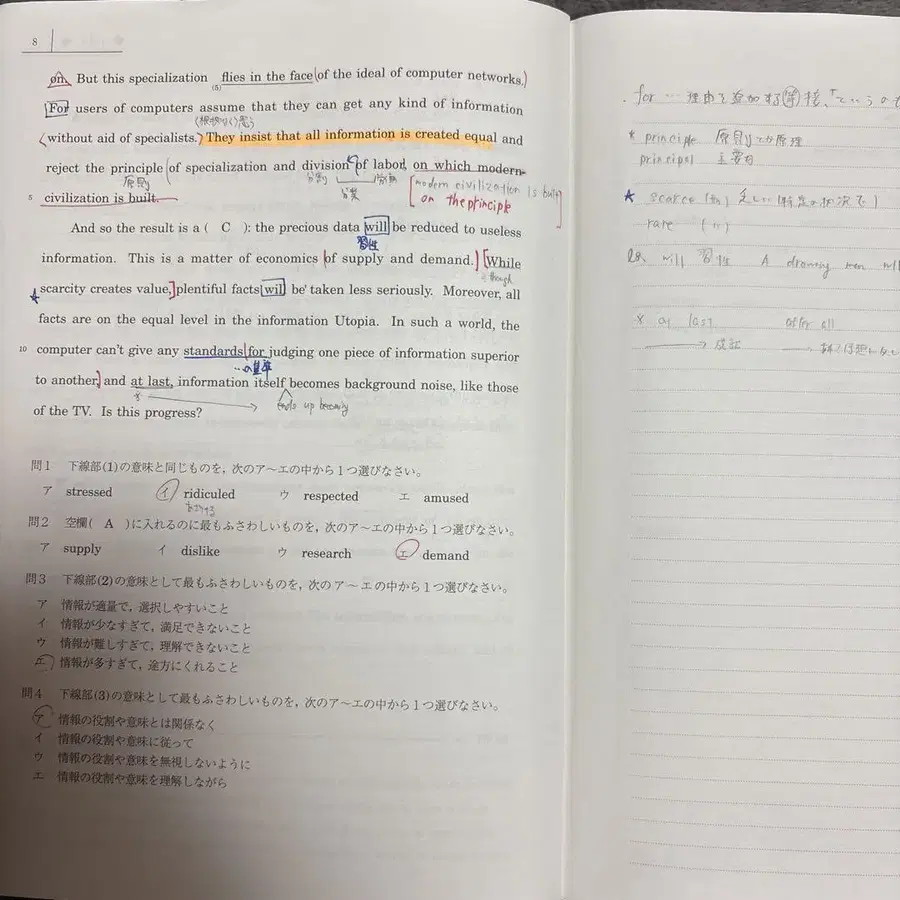 8
on. But this specialization flies in the face of the ideal of computer networks.
(5)
For users of computers assume that they can get any kind of information
without aid of specialists. They insist that all information is created equal and
reject the principle of specialization and division of labor, on which modern
原則
分業
modern civilization is built
on the principle
5 civilization is built.
And so the result is a ( C ): the precious data will be reduced to useless
習性
information. This is a matter of economics of supply and demand. While
though
scarcity creates value, plentiful facts will be taken less seriously. Moreover, all
facts are on the equal level in the information Utopia. In such a world, the
10 computer can't give any standards for judging one piece of information superior
…の基準
to another, and at last, information itself becomes background noise, like those
ends up becoming
of the TV. Is this progress?
問1 下線部(1)の意味と同じものを，次のア〜エの中から1つ選びなさい。
ア stressed イ ridiculed ウ respected エ amused
問2 空欄( A )に入れるのに最もふさわしいものを，次のア〜エの中から1つ選びなさい。
ア supply イ dislike ウ research エ demand
問3 下線部(2)の意味として最もふさわしいものを，次のア〜エの中から1つ選びなさい。
ア 情報が適量で，選択しやすいこと
イ 情報が少なすぎて，満足できないこと
ウ 情報が難しすぎて，理解できないこと
エ 情報が多すぎて，途方にくれること
問4 下線部(3)の意味として最もふさわしいものを，次のア〜エの中から1つ選びなさい。
ア 情報の役割や意味とは関係なく
イ 情報の役割や意味に従って
ウ 情報の役割や意味を無視しないように
エ 情報の役割や意味を理解しながら
for … 理由を追加する
* principle 原則
principal 主要な
★ scarce
rare
will 習性 A drowning man will
* at last after all